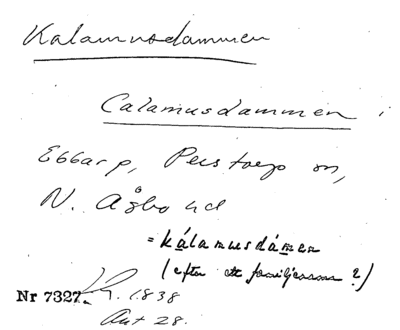 Kalamusdammen
Calamusdammen i
Ebbarp, Perstorps sn,
N. Åsbo hd
= kálamusdámen
(efter ett familjenamn?)
Nr 7327. Kr. 1838
Ant 28.